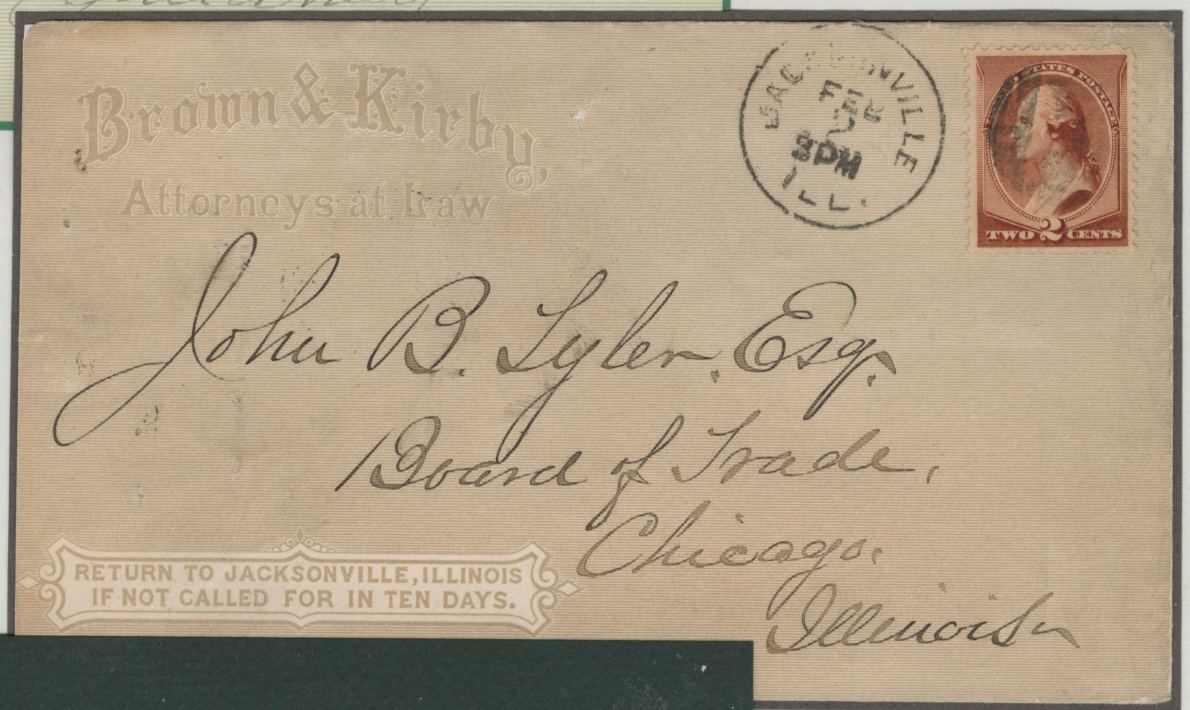 Brown & Kirby,
Attorneys at Law
JACKSONVILLE
FEB
3PM
ILL.
UNITED STATES POSTAGE
TWO 2 CENTS
John B. Lyler, Esq.
Board of Trade,
Chicago,
Illinois
RETURN TO JACKSONVILLE, ILLINOIS
IF NOT CALLED FOR IN TEN DAYS.